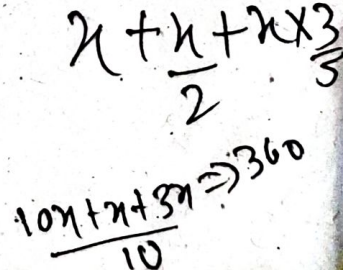 x + x/2 + x × 3/5
10x + x + 3x/10 ⇒ 360